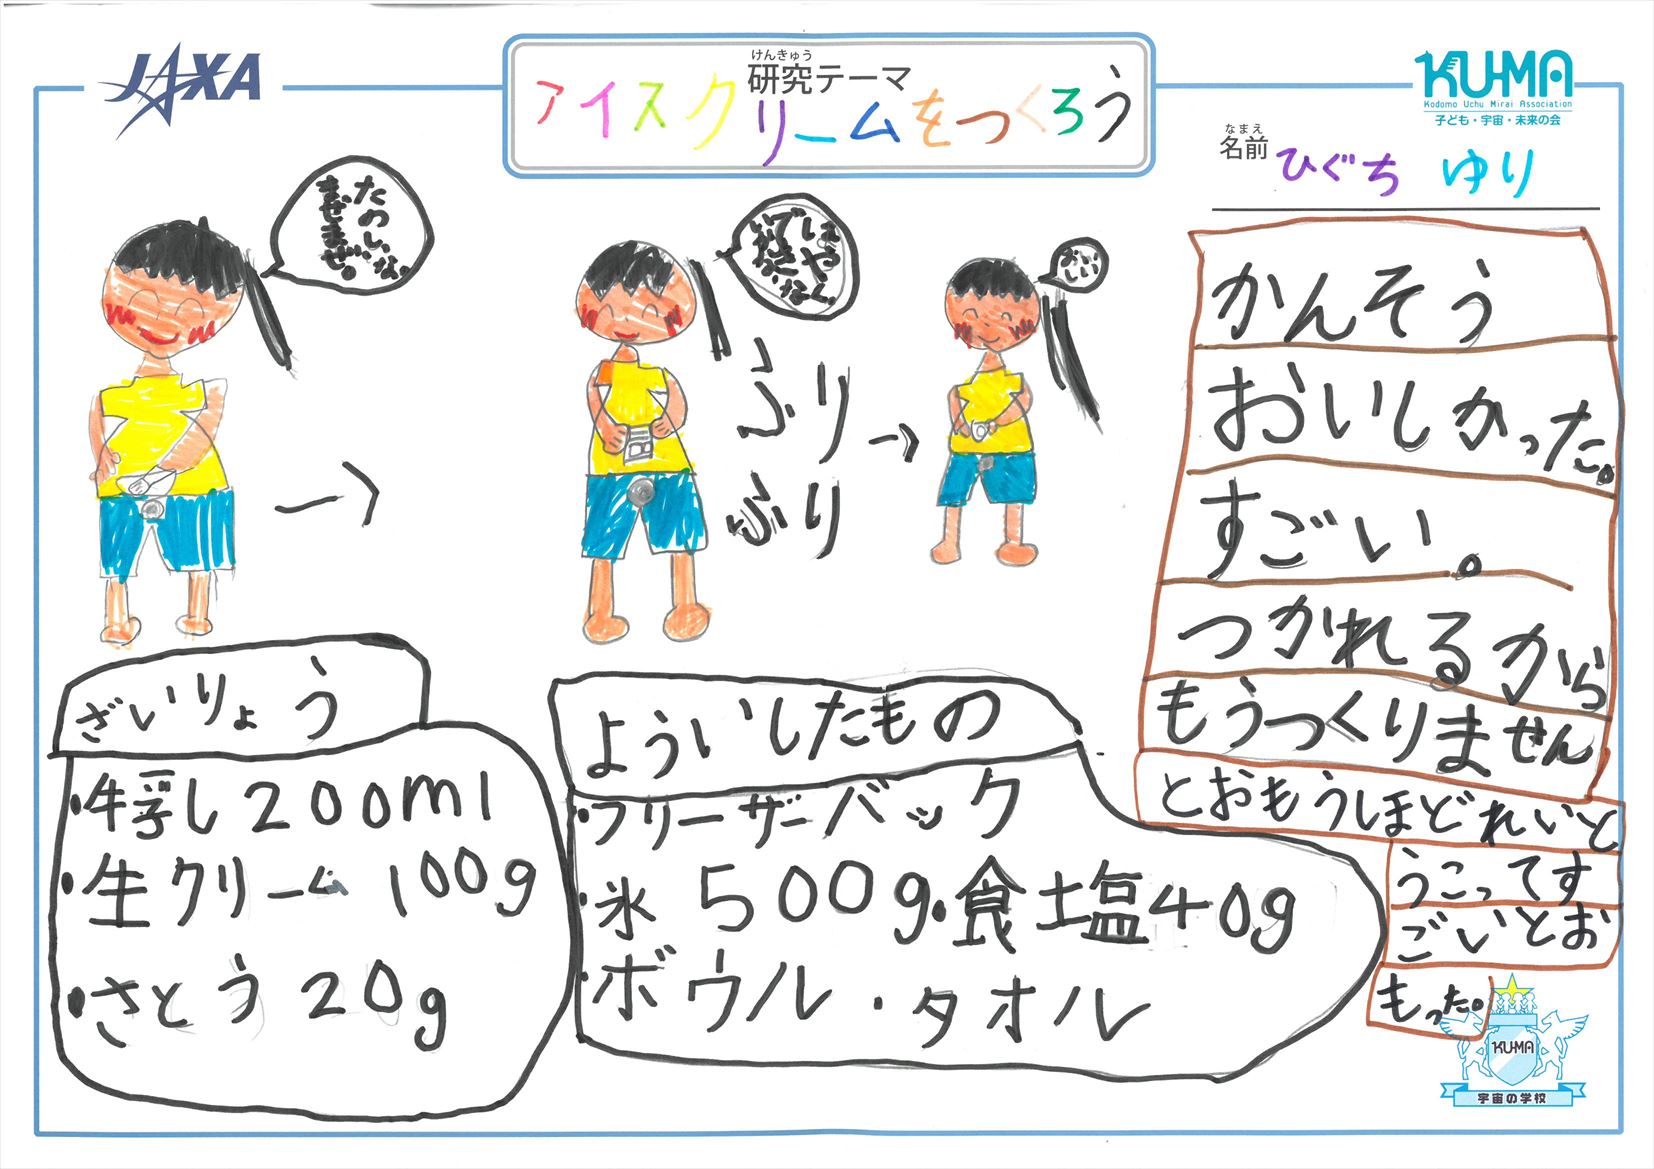 JAXA
けんきゅう
研究テーマ
アイスクリームをつくろう
KUMA
Kodomo Uchu Mirai Association
子ども・宇宙・未来の会
なまえ
名前
ひぐち ゆり
たのしいな。
まぜまぜ。
はやく。
ふり
ふり
おいしい
かんそう
おいしかった。
すごい。
つかれるから
もうつくりません
とおもうほどれいと
うこってす
ごいとお
もった。
ざいりょう
・牛乳200ml
・生クリーム100g
・さとう20g
よういしたもの
・フリーザーバック
・氷 500g・食塩40g
・ボウル・タオル
KUMA
宇宙の学校